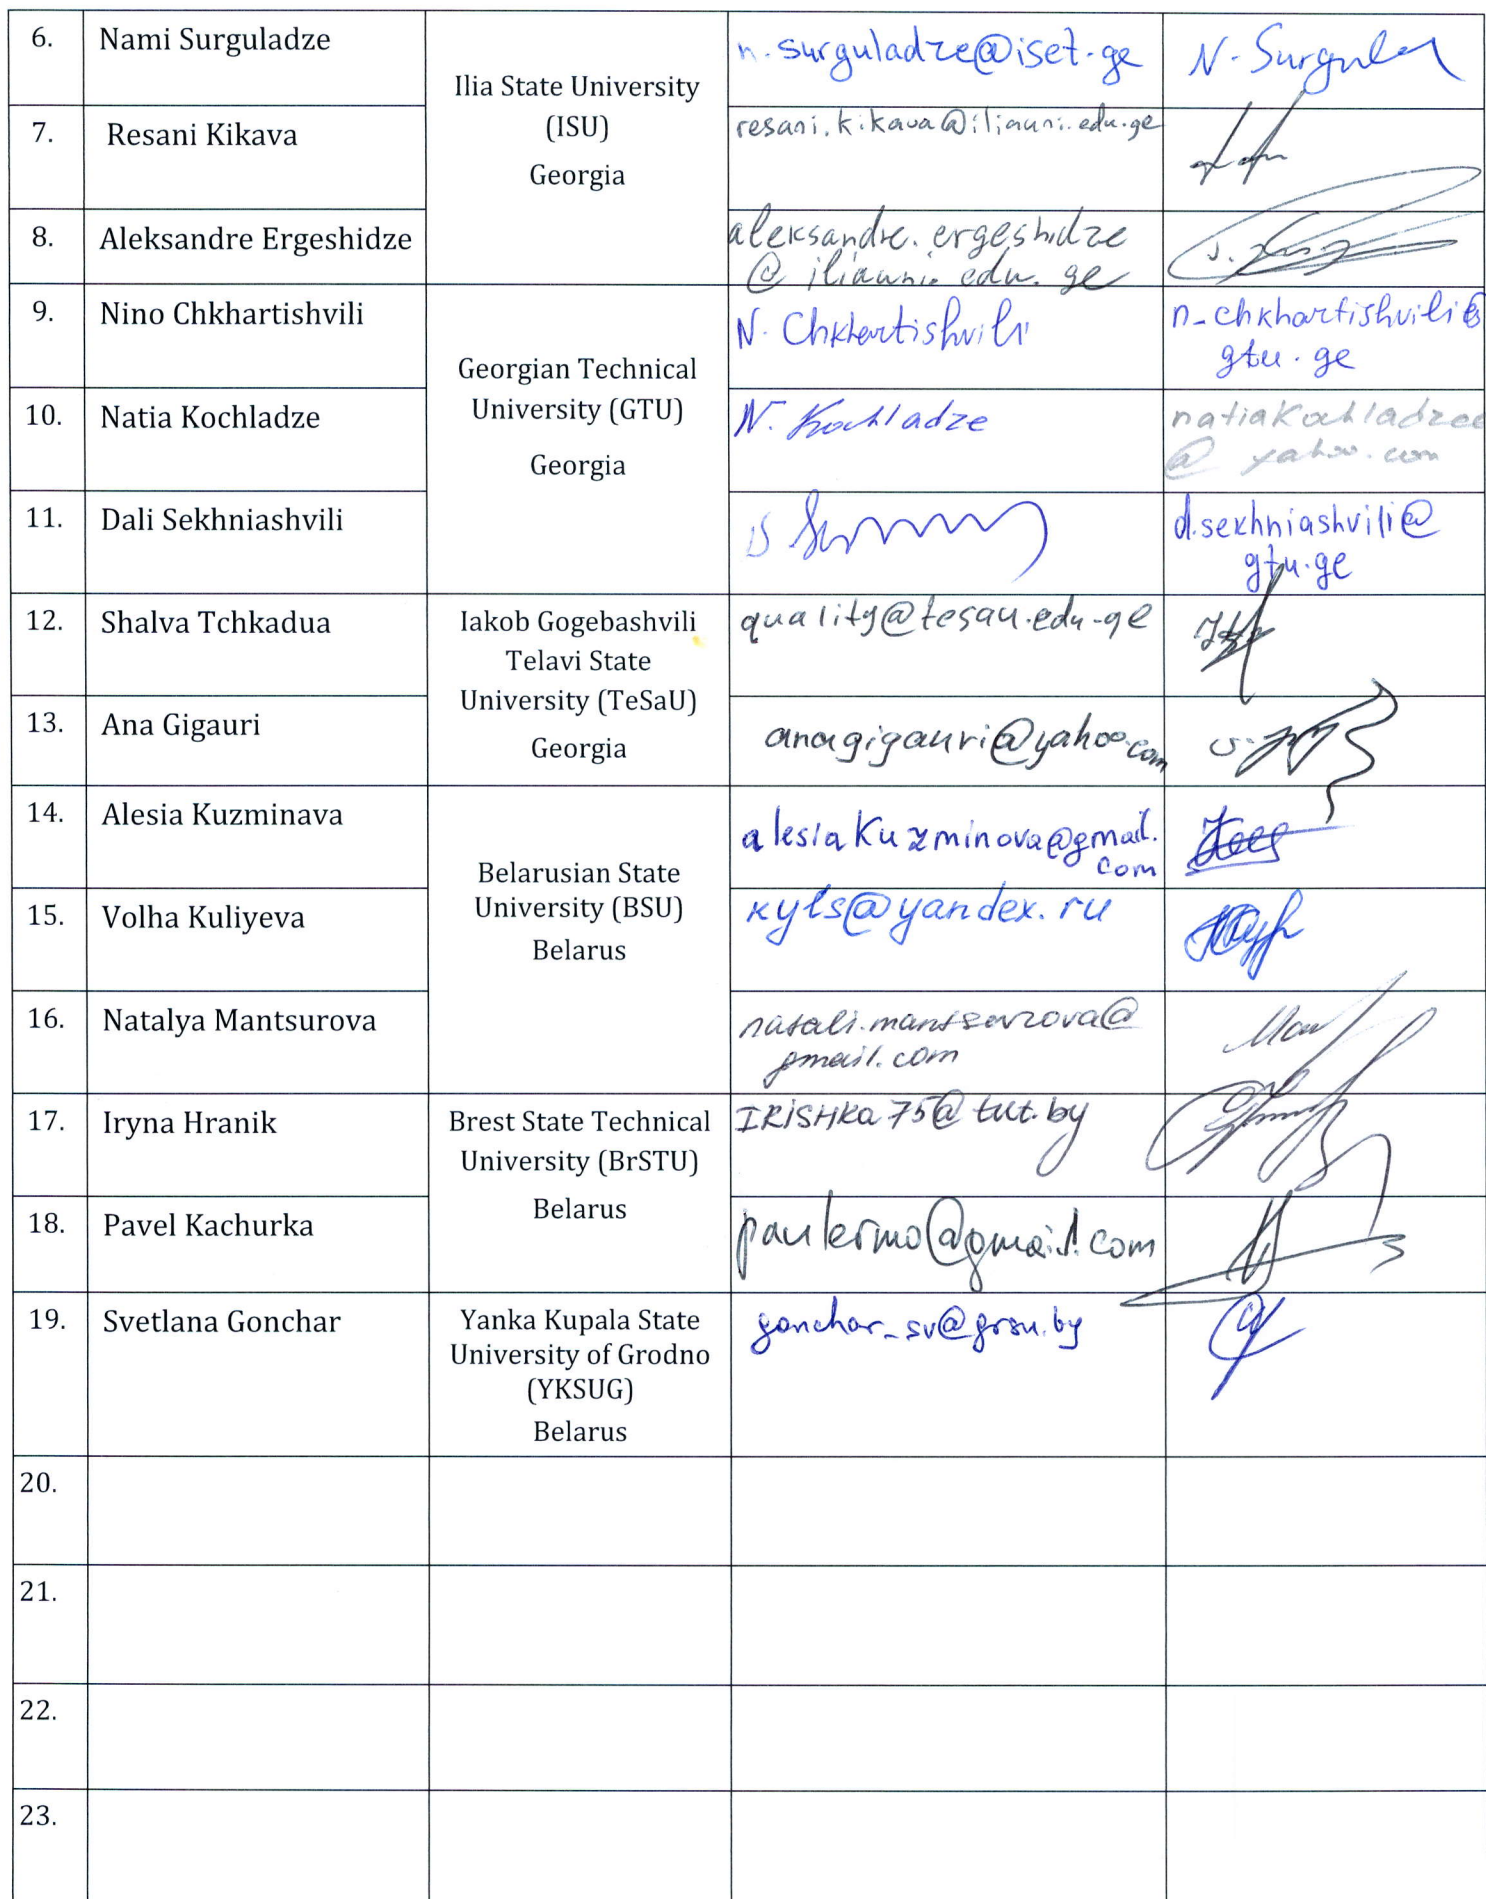 6.
Nami Surguladze
Ilia State University
(ISU)
Georgia
n.surguladze@iset.ge
N. Surgula
7.
Resani Kikava
resani.kikava@iliauni.edu.ge
8.
Aleksandre Ergeshidze
aleksandre.ergeshidze
@iliauni.edu.ge
9.
Nino Chkhartishvili
Georgian Technical
University (GTU)
Georgia
N. Chkhartishvili
n_chkhartishvili@
gtu.ge
10.
Natia Kochladze
N. Kochladze
natiakochladzee
@yahoo.com
11.
Dali Sekhniashvili
d.sekhniashvili@
gtu.ge
12.
Shalva Tchkadua
Iakob Gogebashvili
Telavi State
University (TeSaU)
Georgia
quality@tesau.edu.ge
13.
Ana Gigauri
anagigauri@yahoo.com
14.
Alesia Kuzminava
Belarusian State
University (BSU)
Belarus
alesiakuzminova@gmail.
com
15.
Volha Kuliyeva
kyls@yandex.ru
16.
Natalya Mantsurova
natali.mantsurova@
gmail.com
17.
Iryna Hranik
Brest State Technical
University (BrSTU)
Belarus
IRISHKa75@tut.by
18.
Pavel Kachurka
paulermo@gmail.com
19.
Svetlana Gonchar
Yanka Kupala State
University of Grodno
(YKSUG)
Belarus
gonchar_sv@grsu.by
20.
21.
22.
23.